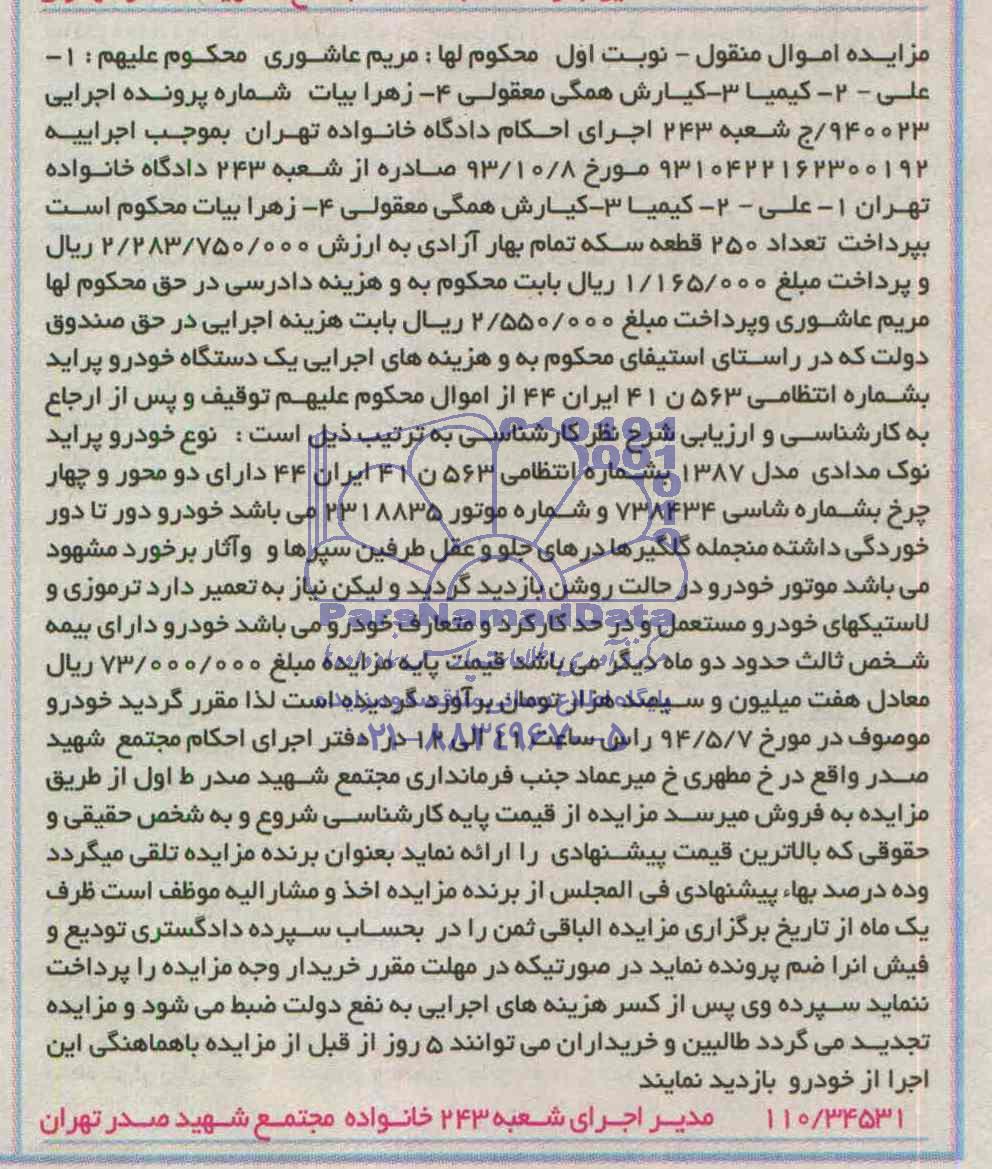 مزایده اموال منقول - نوبت اول محکوم لها : مریم عاشوری محکوم علیهم : ۱-
علی - ۲- کیمیا ۳-کیارش همگی معقولی ۴- زهرا بیات شماره پرونده اجرایی
۹۴۰۰۲۳/ج شعبه ۲۴۳ اجرای احکام دادگاه خانواده تهران بموجب اجراییه
۹۳۱۰۴۲۲۱۶۲۳۰۰۱۹۲ مورخ ۹۳/۱۰/۸ صادره از شعبه ۲۴۳ دادگاه خانواده
تهران ۱- علی - ۲- کیمیا ۳-کیارش همگی معقولی ۴- زهرا بیات محکوم است
بپرداخت تعداد ۲۵۰ قطعه سکه تمام بهار آزادی به ارزش ۲/۲۸۳/۷۵۰/۰۰۰ ریال
و پرداخت مبلغ ۱/۱۶۵/۰۰۰ ریال بابت محکوم به و هزینه دادرسی در حق محکوم لها
مریم عاشوری وپرداخت مبلغ ۲/۵۵۰/۰۰۰ ریال بابت هزینه اجرایی در حق صندوق
دولت که در راستای استیفای محکوم به و هزینه های اجرایی یک دستگاه خودرو پراید
بشماره انتظامی ۵۶۳ ن ۴۱ ایران ۴۴ از اموال محکوم علیهم توقیف و پس از ارجاع
به کارشناسی و ارزیابی شرح نظر کارشناسی به ترتیب ذیل است : نوع خودرو پراید
نوک مدادی مدل ۱۳۸۷ بشماره انتظامی ۵۶۳ ن ۴۱ ایران ۴۴ دارای دو محور و چهار
چرخ بشماره شاسی ۷۳۸۴۳۴ و شماره موتور ۲۳۱۸۸۳۵ می باشد خودرو دور تا دور
خوردگی داشته منجمله گلگیرها درهای جلو و عقل طرفین سپرها و وآثار برخورد مشهود
می باشد موتور خودرو در حالت روشن بازدید گردید و لیکن نیاز به تعمیر دارد ترموزی و
ParsNamadData
لاستیکهای خودرو مستعمل و در حد کارکرد و متعارف خودرو می باشد خودرو دارای بیمه
شخص ثالث حدود دو ماه دیگر می باشد قیمت پایه مزایده مبلغ ۷۳/۰۰۰/۰۰۰ ریال
معادل هفت میلیون و سیصد هزار تومان برآورد گردیده است لذا مقرر گردید خودرو
۰۲۱-۸۸۳۴۹۶۷۰-۵
موصوف در مورخ ۹۴/۵/۷ راس ساعت ۱۱ الی ۱۲ در دفتر اجرای احکام مجتمع شهید
صدر واقع در خ مطهری خ میرعماد جنب فرمانداری مجتمع شهید صدر ط اول از طریق
مزایده به فروش میرسد مزایده از قیمت پایه کارشناسی شروع و به شخص حقیقی و
حقوقی که بالاترین قیمت پیشنهادی را ارائه نماید بعنوان برنده مزایده تلقی میگردد
وده درصد بهاء پیشنهادی فی المجلس از برنده مزایده اخذ و مشارالیه موظف است ظرف
یک ماه از تاریخ برگزاری مزایده الباقی ثمن را در بحساب سپرده دادگستری تودیع و
فیش انرا ضم پرونده نماید در صورتیکه در مهلت مقرر خریدار وجه مزایده را پرداخت
ننماید سپرده وی پس از کسر هزینه های اجرایی به نفع دولت ضبط می شود و مزایده
تجدید می گردد طالبین و خریداران می توانند ۵ روز از قبل از مزایده باهماهنگی این
اجرا از خودرو بازدید نمایند
۱۱۰/۳۴۵۳۱ مدیر اجرای شعبه ۲۴۳ خانواده مجتمع شهید صدر تهران